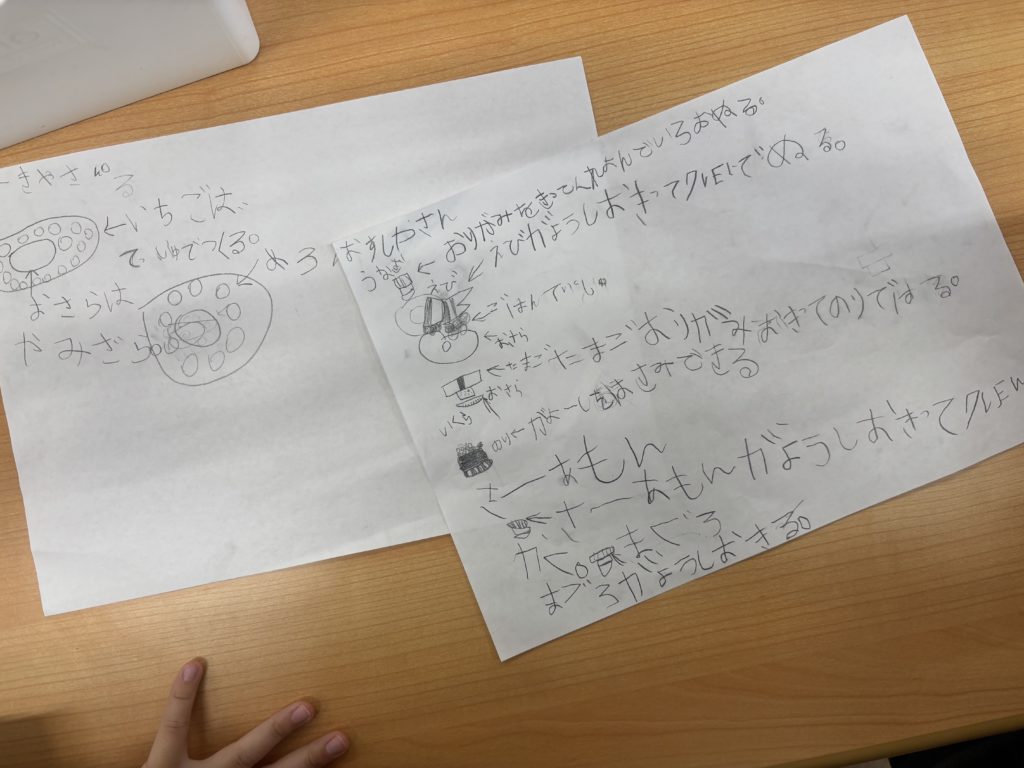 ーきやさん
る
←いちごは、
てぃしゅでつくる。
おさらは
かみざら
めろ
おすしやさん
うに
←おりがみをきってんれよんでいろおぬる。
えび
←えびがようしおきってクレヨンでぬる。
←ごはんてぃしゅ
←おさら
←たまごたまごおりがみおきてのりではる。
おさら
いくら
のり←がよーしをはさみできる
さーあもん
←さーあもんがようしおきってクレヨン
かく。
まぐろ
まぐろがようしおきる。